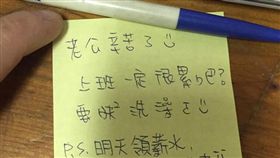 老公辛苦了☺
上班一定很累吧?
要快洗澡ㄛ☺
P.S. 明天領薪水,